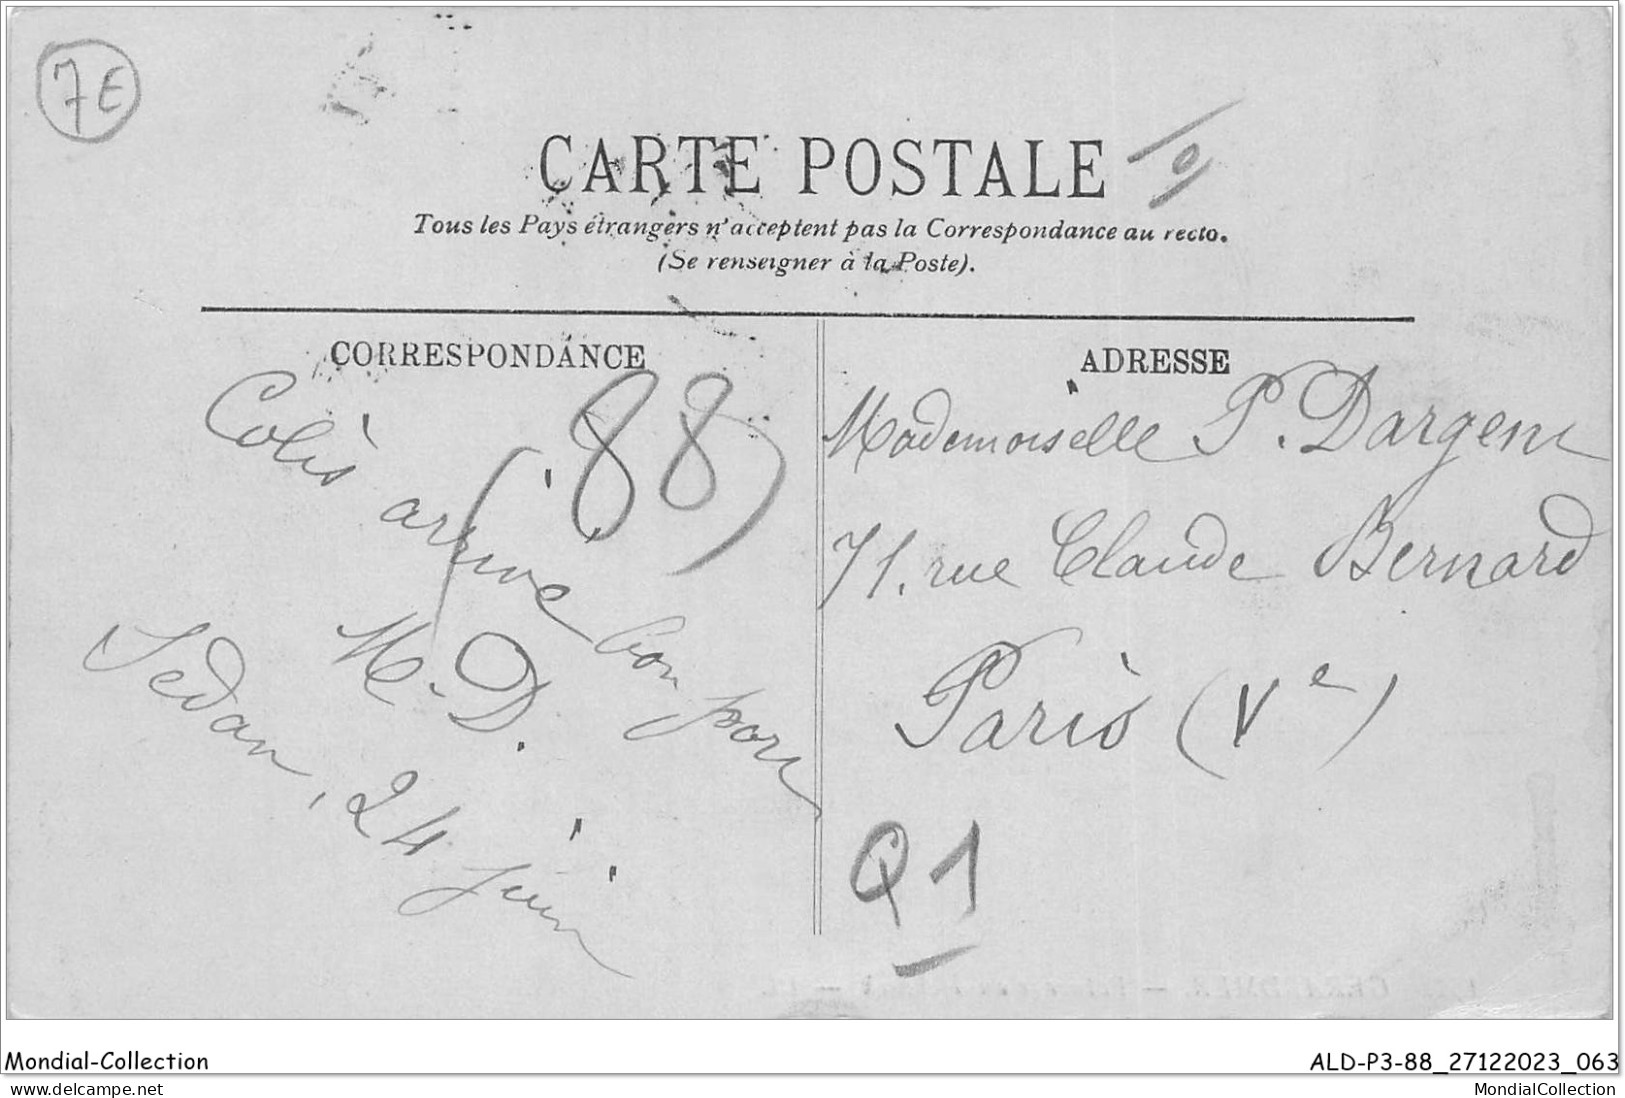 7E
CARTE POSTALE
Tous les Pays étrangers n'acceptent pas la Correspondance au recto.
(Se renseigner à la Poste).
CORRESPONDANCE
ADRESSE
Colis arrivé bon port
M. D.
Sedan, 24 juin
(88)
Mademoiselle P. Dargent
71, rue Claude Bernard
Paris (Ve)
Q1
GERARDMER
Mondial-Collection
ALD-P3-88_27122023_063
www.delcampe.net
MondialCollection